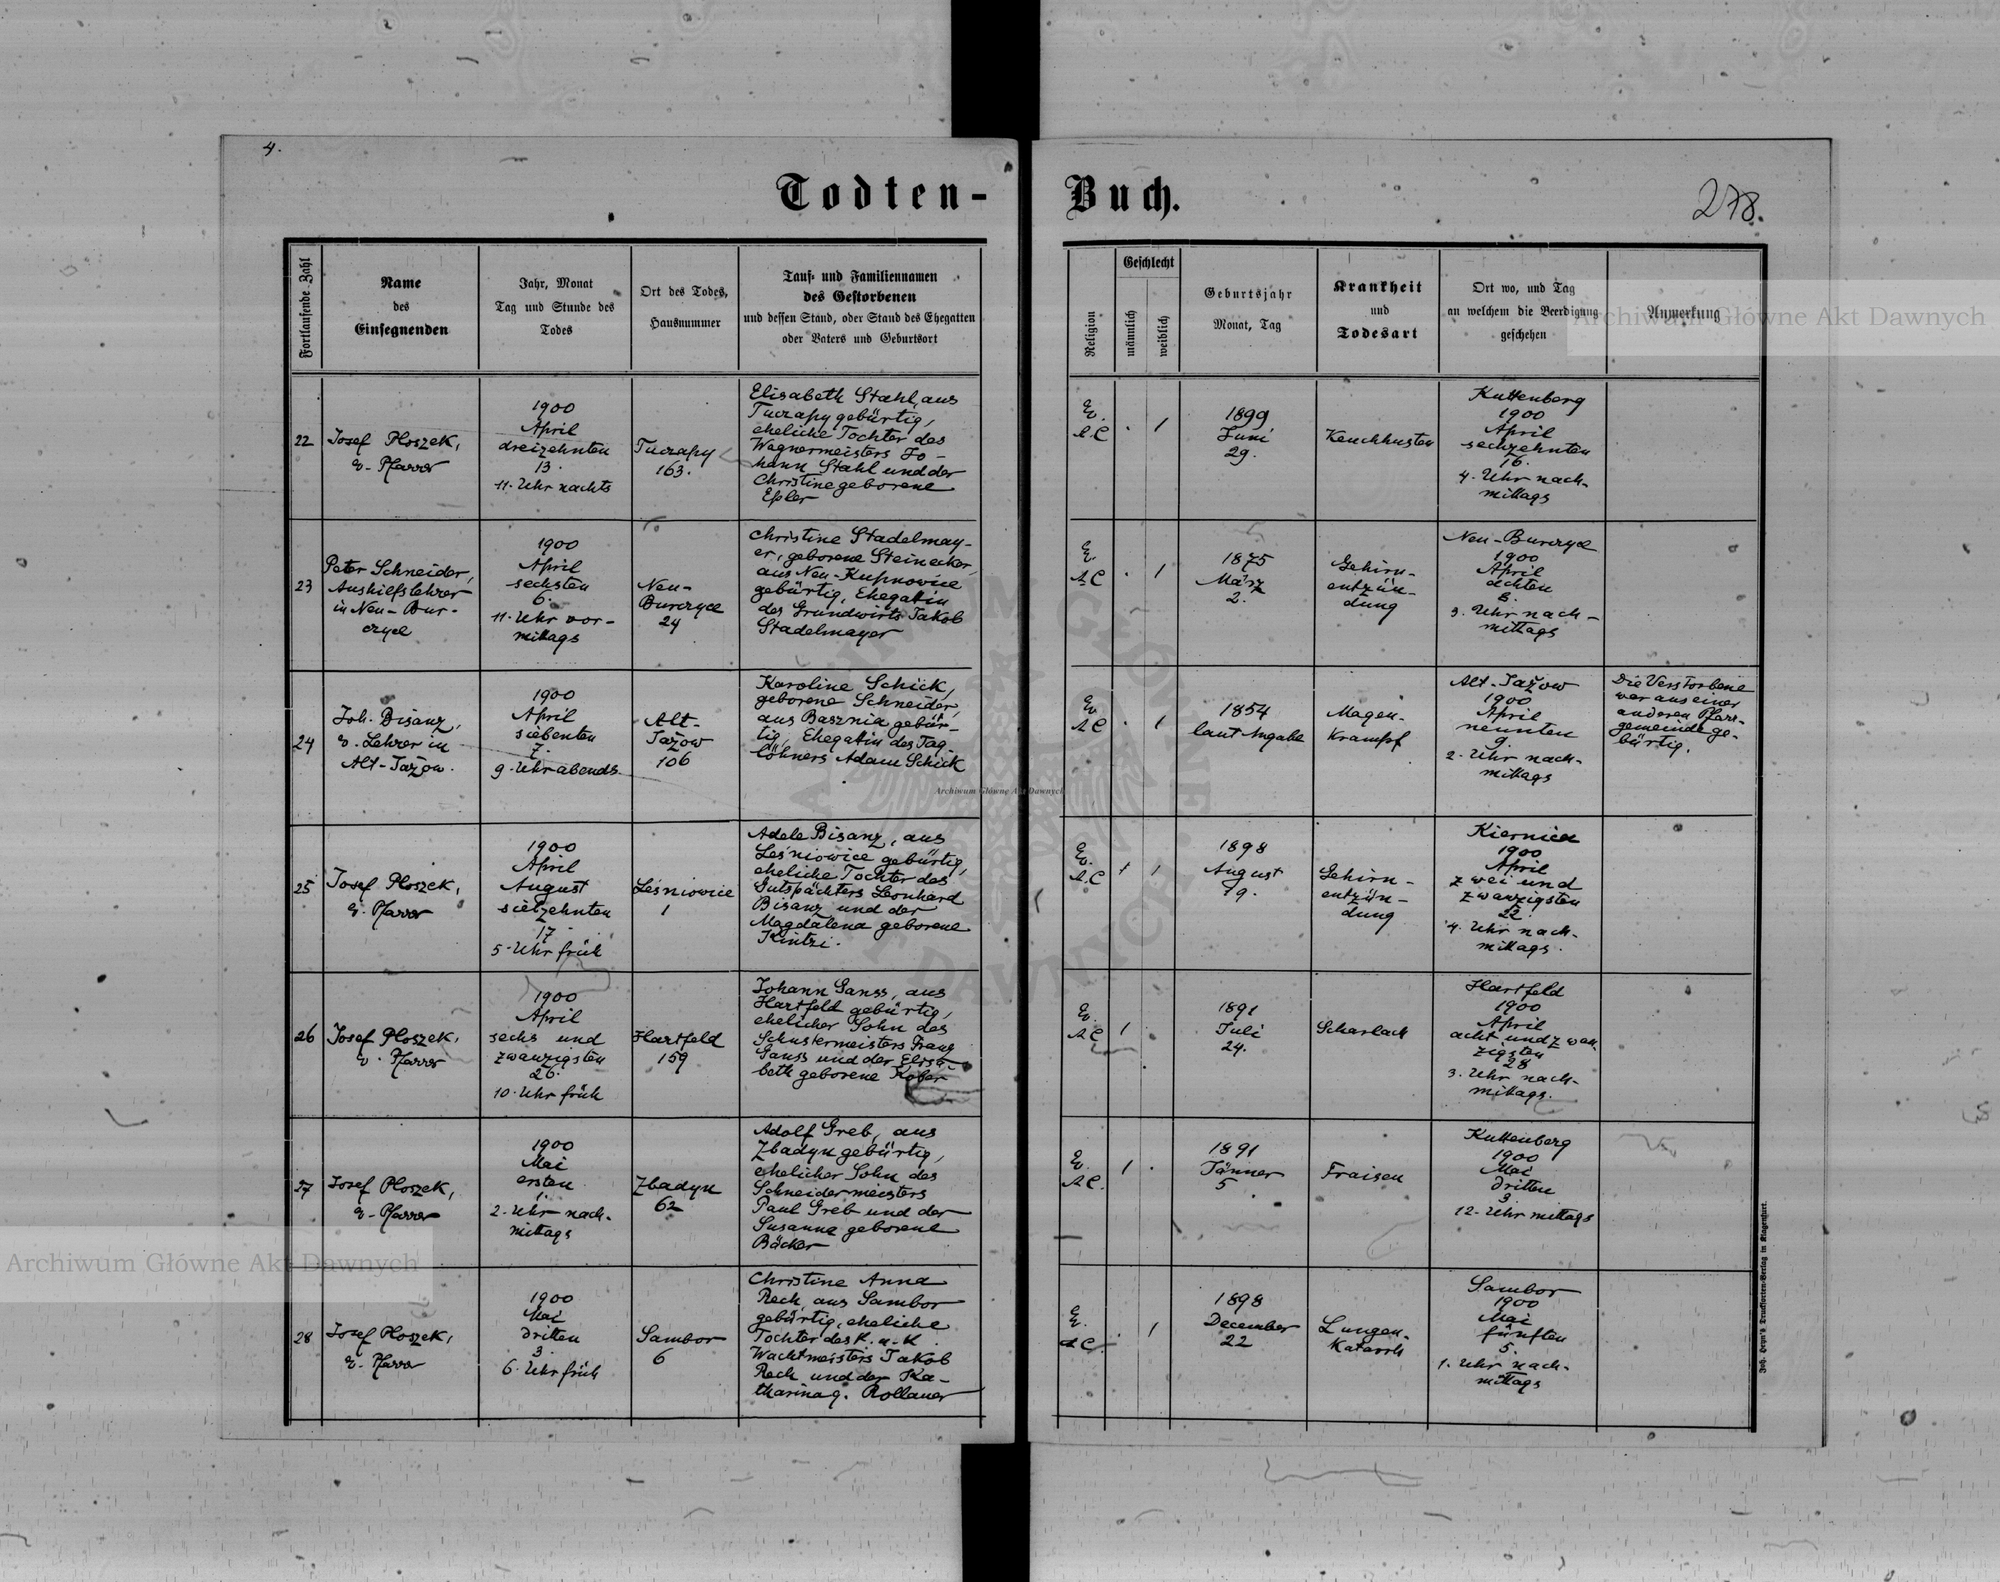 4.
Todten-
Buch.
278.
Fortlaufende Zahl
Name
des
Einsegnenden
Jahr, Monat
Tag und Stunde des
Todes
Ort des Todes,
Hausnummer
Tauf- und Familiennamen
des Gestorbenen
und dessen Stand, oder Stand des Ehegatten
oder Vaters und Geburtsort
Religion
Geschlecht
männlich
weiblich
Geburtsjahr
Monat, Tag
Krankheit
und
Todesart
Ort wo, und Tag
an welchem die Beerdigung
geschehen
Anmerkung
22
Josef Ploszek,
ev. Pfarrer
1900
April
dreizehnten
13.
11. Uhr nachts
Tuczapy
163.
Elisabeth Stahl, aus
Tuczapy gebürtig,
eheliche Tochter des
Wagnermeisters Jo-
hann Stahl und der
Christine geborene
Eßler
Ev.
A.C
1
1899
Juni
29.
Keuchhusten
Kuttenberg
1900
April
sechzehnten
16.
4. Uhr nach-
mittags
23
Peter Schneider,
Aushilfslehrer
in Neu-Bur-
czyce
1900
April
sechsten
6.
11. Uhr vor-
mittags
Neu-
Burczyce
24
Christine Stadelmay-
er, geborene Steinecker,
aus Neu-Kupnowice
gebürtig, Ehegattin
des Grundwirts Jakob
Stadelmayer
Ev.
A.C
1
1875
März
2.
Gehirn-
entzün-
dung
Neu-Burczyce
1900
April
achten
8.
3. Uhr nach-
mittags
24
Joh. Bisanz,
ev. Lehrer in
Alt-Jażow.
1900
April
siebenten
7.
9. Uhr abends.
Alt-
Jażow
106
Karoline Schick,
geborene Schneider,
aus Basznia gebür-
tig, Ehegattin des Tag-
löhners Adam Schick
Ev
A.C
1
1854
laut Angabe
Magen-
Krampf
Alt-Jażow
1900
April
neunten
9.
2. Uhr nach-
mittags
Die Verstorbene
war aus einer
anderen Pfarr-
gemeinde ge-
bürtig.
25
Josef Ploszek,
ev. Pfarrer
1900
April
August
siebzehnten
17.
5. Uhr früh
Leśniowice
1
Adele Bisanz, aus
Leśniowice gebürtig,
eheliche Tochter des
Gutspächters Leonhard
Bisanz und der
Magdalena geborene
Kintzi.
Ev.
A.C
1
1898
August
9.
Gehirn-
entzün-
dung
Kiernica
1900
April
zwei und
zwanzigsten
22.
4. Uhr nach-
mittags.
26
Josef Ploszek,
ev. Pfarrer
1900
April
sechs und
zwanzigsten
26.
10. Uhr früh
Hartfeld
159
Johann Ganss, aus
Hartfeld gebürtig,
ehelicher Sohn des
Schustermeisters Franz
Ganss und der Elisa-
beth geborene Kober
Ev.
A.C
1
1891
Juli
24.
Scharlach
Hartfeld
1900
April
acht und zwan-
zigsten
28
3. Uhr nach-
mittags.
27
Josef Ploszek,
ev. Pfarrer
1900
Mai
ersten
1.
2. Uhr nach-
mittags
Zbadyn
62
Adolf Greb, aus
Zbadyn gebürtig,
ehelicher Sohn des
Schneidermeisters
Paul Greb und der
Susanna geborene
Bäcker
Ev.
A.C.
1
1891
Jänner
5
Fraisen
Kuttenberg
1900
Mai
dritten
3.
12. Uhr mittags
28
Josef Ploszek,
ev. Pfarrer
1900
Mai
dritten
3.
6. Uhr früh
Sambor
6
Christine Anna
Rech, aus Sambor
gebürtig, eheliche
Tochter des K. u. K.
Wachtmeisters Jakob
Rech und der Ka-
tharina g. Rollauer
Ev.
A.C.
1
1898
December
22
Lungen-
Katarrh
Sambor
1900
Mai
fünften
5.
1. Uhr nach-
mittags
Joh. Heyn's Drucksorten-Verlag in Klagenfurt.
Archiwum Główne Akt Dawnych
Archiwum Główne Akt Dawnych
Archiwum Główne Akt Dawnych
ARCHIWUM GŁÓWNE AKT DAWNYCH